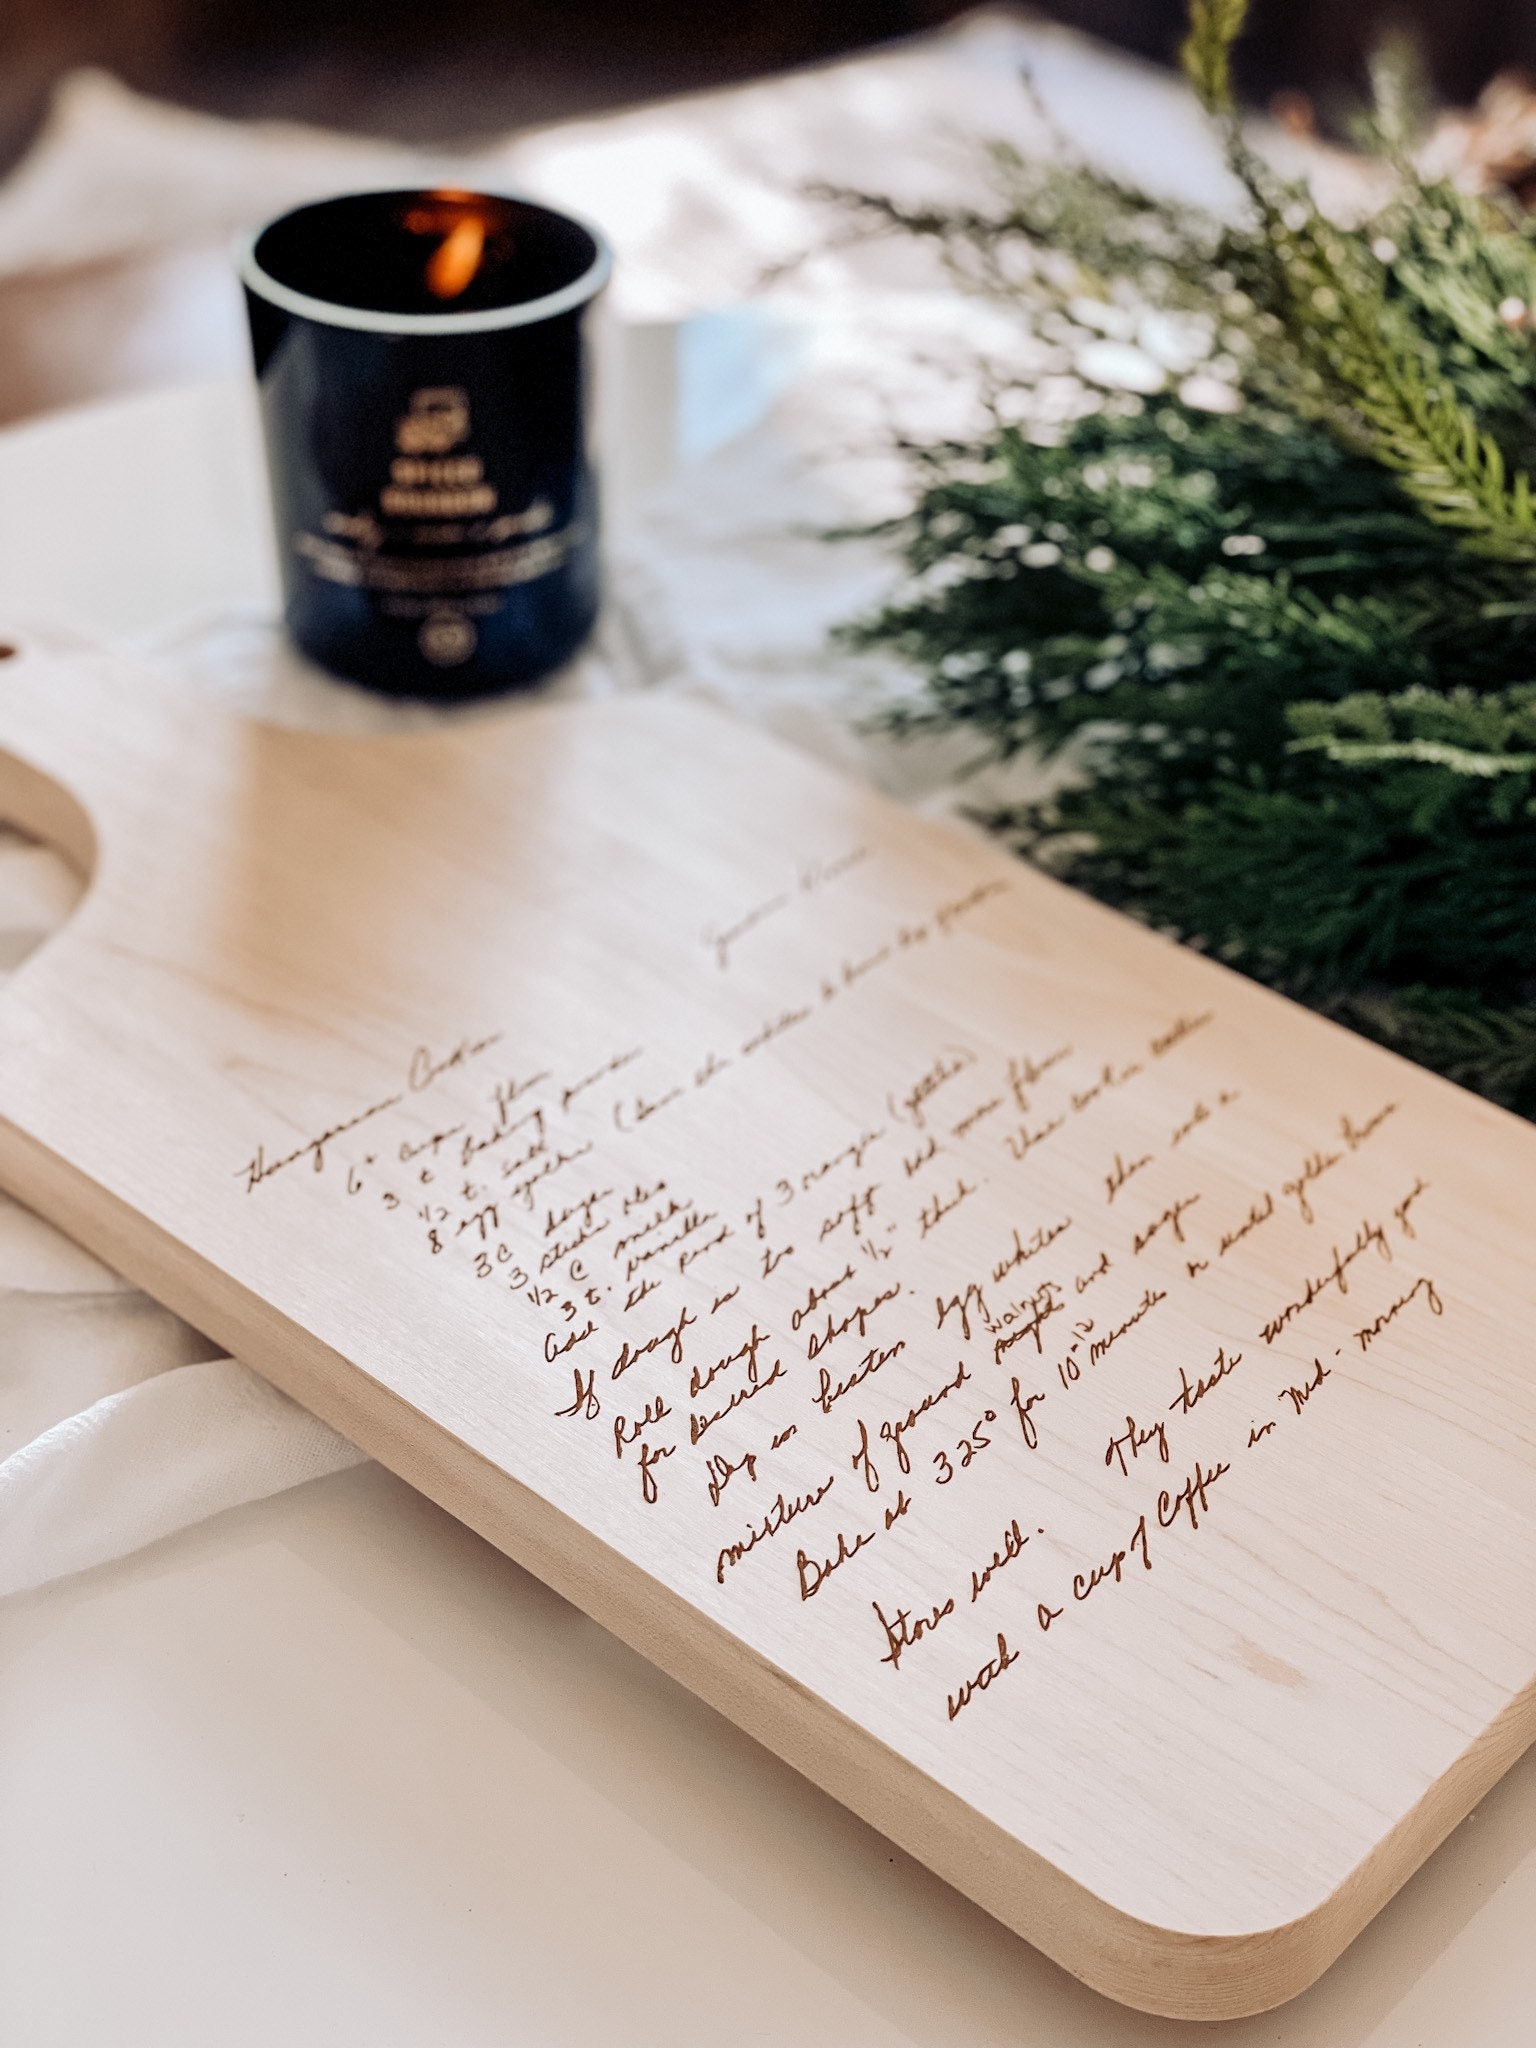 Hungarian Cookies
6+ cups flour
3 t baking powder
1/2 t. salt
8 egg yolks (Save the whites to
3 c sugar
3 sticks oleo
1/2 c milk
3 t. vanilla
Add the rind of 3 oranges (grated)
If dough is too soft add more flour
Roll dough about 1/2" thick. Use cookie cutters
for desired shapes.
Dip in beaten egg whites then into a
walnuts
mixture of ground and sugar
Bake at 325° for 10-12 minutes or until golden brown
Stores well. They taste wonderfully good
with a cup of Coffee in Mid-morning